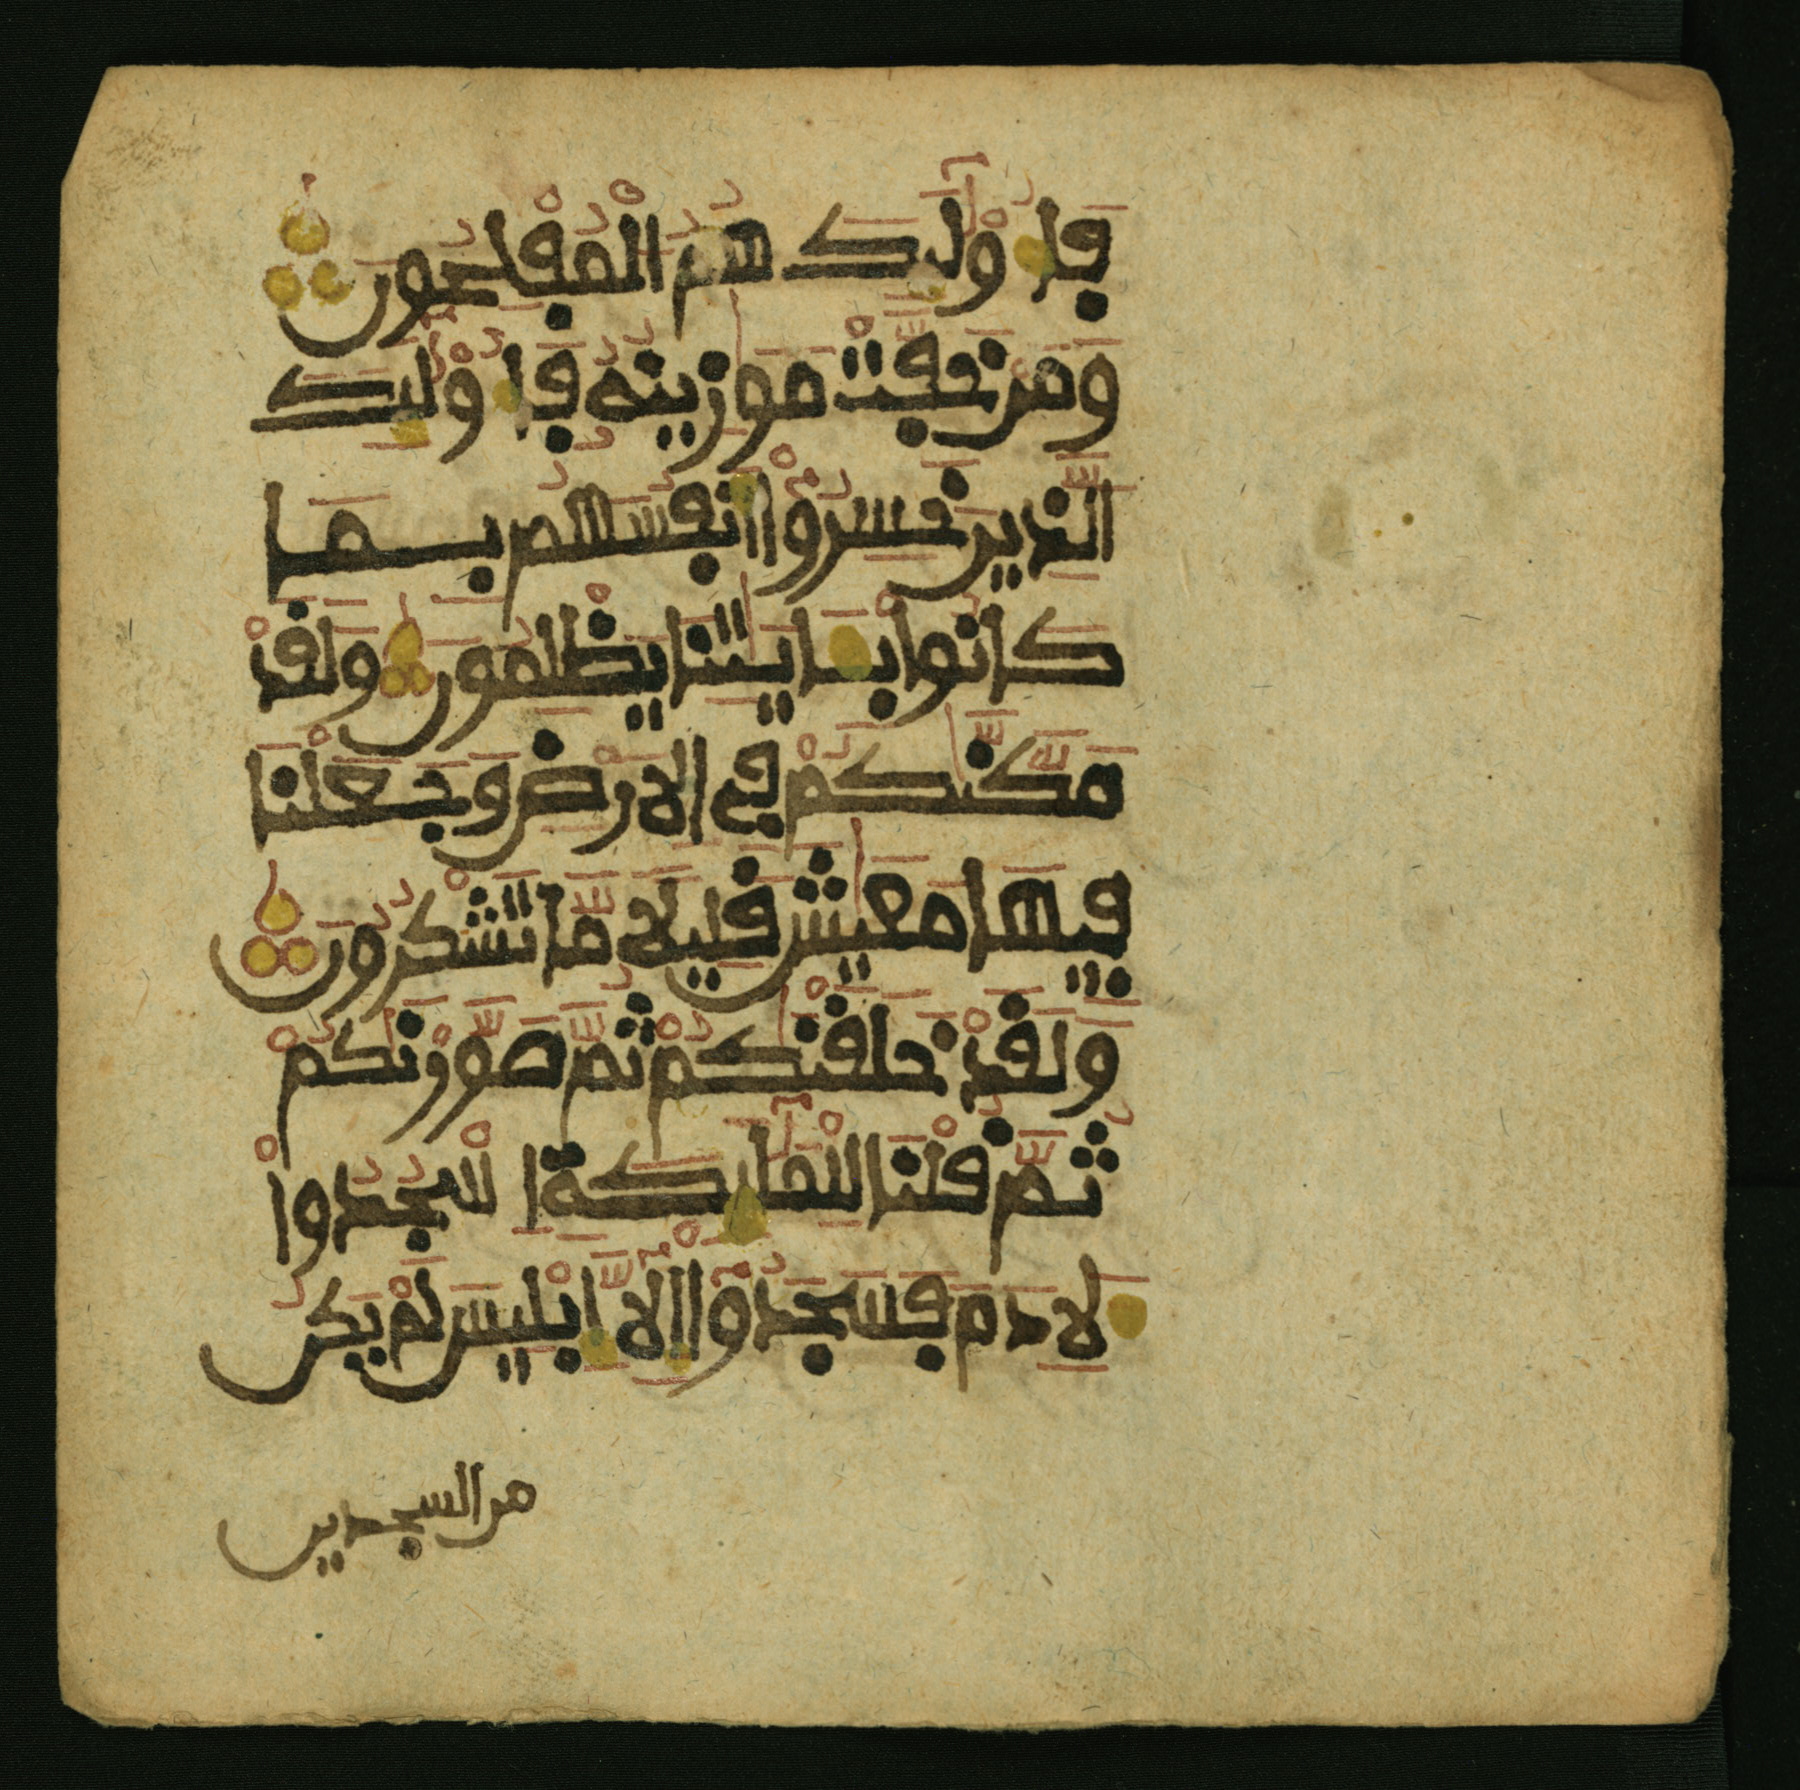 فَأُوْلَٰٓئِكَ هُمُ الْمُفْلِحُونَ
وَمَنْ خَفَّتْ مَوَٰزِينُهُ فَأُوْلَٰٓئِكَ
الَّذِينَ خَسِرُوٓاْ أَنفُسَهُم بِمَا
كَانُواْ بِـَٔايَٰتِنَا يَظْلِمُونَ وَلَقَدْ
مَكَّنَّٰكُمْ فِي الْأَرْضِ وَجَعَلْنَا
فِيهَا مَعَٰيِشَ قَلِيلًا مَّا تَشْكُرُونَ
وَلَقَدْ خَلَقْنَٰكُمْ ثُمَّ صَوَّرْنَٰكُمْ
ثُمَّ قُلْنَا لِلْمَلَٰٓئِكَةِ اسْجُدُواْ
لِأَدَمَ فَسَجَدُوٓاْ إِلَّآ إِبْلِيسَ لَمْ يَكُن
من السجدين